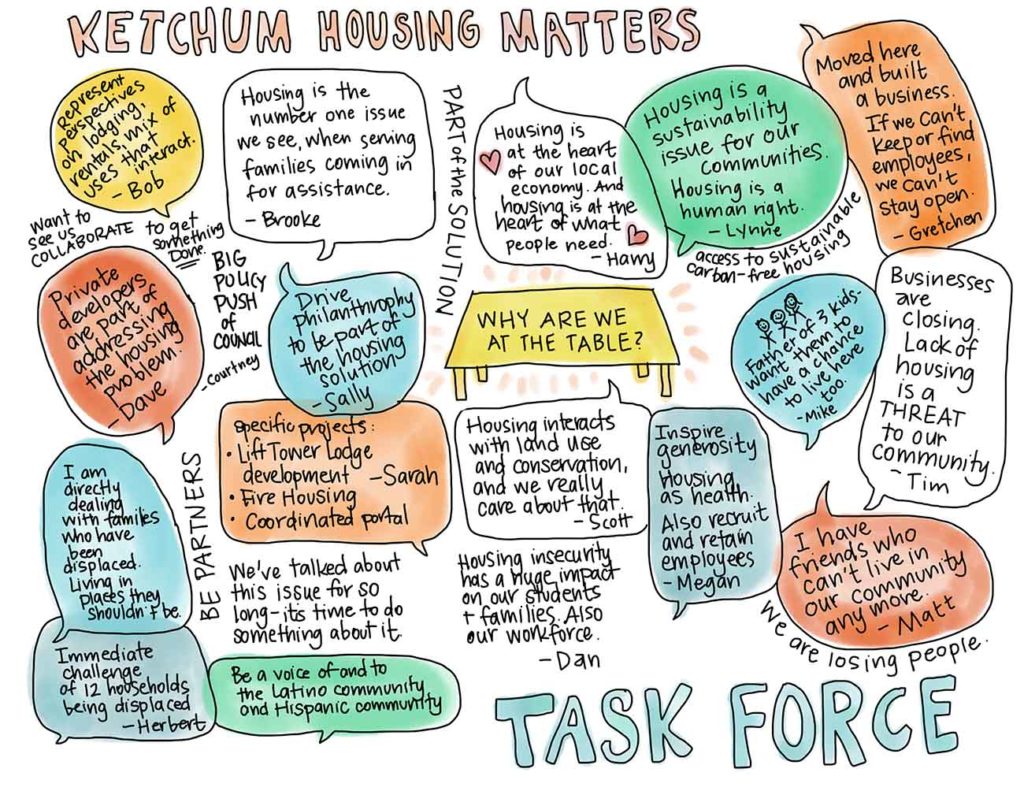 KETCHUM HOUSING MATTERS
Represent
perspectives
on lodging,
rentals, mix of
uses that
interact.
- Bob
Housing is the
number one issue
we see, when serving
families coming in
for assistance.
- Brooke
PART of the SOLUTION
Housing is
at the heart
of our local
economy. And
housing is at the
heart of what
people need.
- Harry
Housing is a
sustainability
issue for our
communities.
Housing is a
human right.
- Lynne
access to sustainable
carban-free housing
Moved here
and built
a business.
If we can't
keep or find
employees,
we can't
stay open.
- Gretchen
want to
see us
COLLABORATE
to get
something
DONE.
Private
developers
are part of
addressing
the housing
problem.
- Dave
BIG
POLICY
PUSH
of
COUNCIL
- Courtney
Drive
philanthrophy
to be part of
the housing
solution
- Sally
WHY ARE WE
AT THE TABLE?
Father of 3 kids-
want them to
have a chance
to live here
too.
- Mike
Businesses
are
closing.
Lack of
housing
is a
THREAT
to our
community.
- Tim
I am
directly
dealing
with families
who have
been
displaced.
Living in
places they
shouldn't be.
BE PARTNERS
Specific projects:
• Lift Tower Lodge
development - Sarah
• Fire Housing
• Coordinated portal
Housing interacts
with land use
and conservation,
and we really
care about that.
- Scott
Inspire
generosity
Housing
as health.
Also recruit
and retain
employees
- Megan
I have
friends who
can't live in
our community
any more.
- Matt
We are losing people.
We've talked about
this issue for so
long-it's time to do
something about it.
Housing insecurity
has a huge impact
on our students
+ families. Also
our workforce.
- Dan
Immediate
challenge
of 12 households
being displaced
- Herbert
Be a voice of and to
the Latino community
and Hispanic community
TASK FORCE